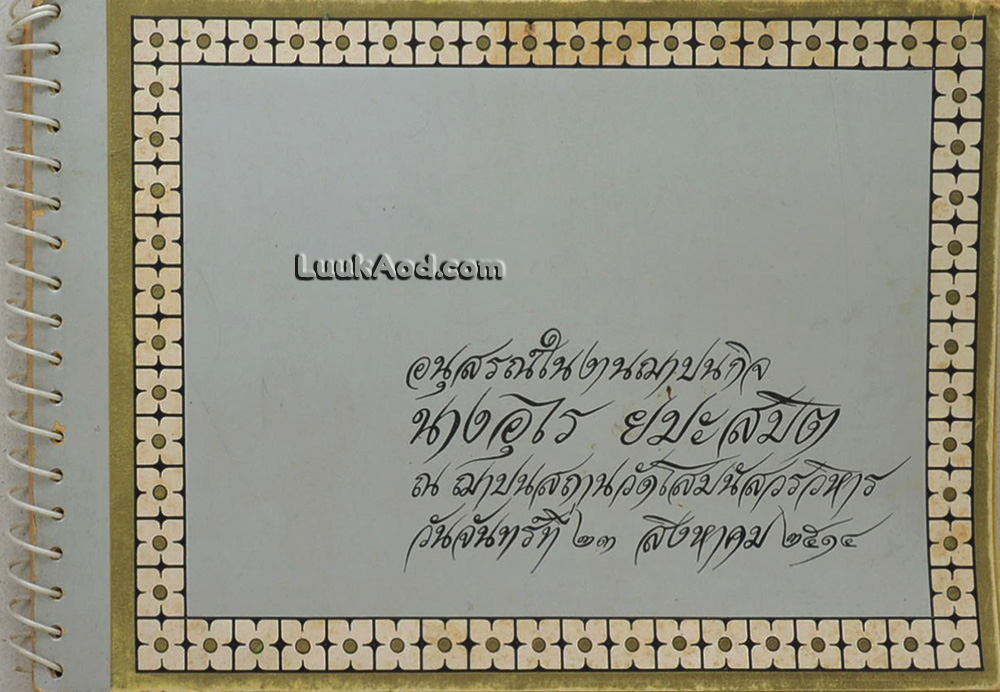 LuukAod.com
อนุสรณ์ในงานฌาปนกิจ
นางอุไร ยมะสมิต
ณ ฌาปนสถานวัดโสมนัสวรวิหาร
วันจันทร์ที่ ๒๓ สิงหาคม ๒๕๑๔